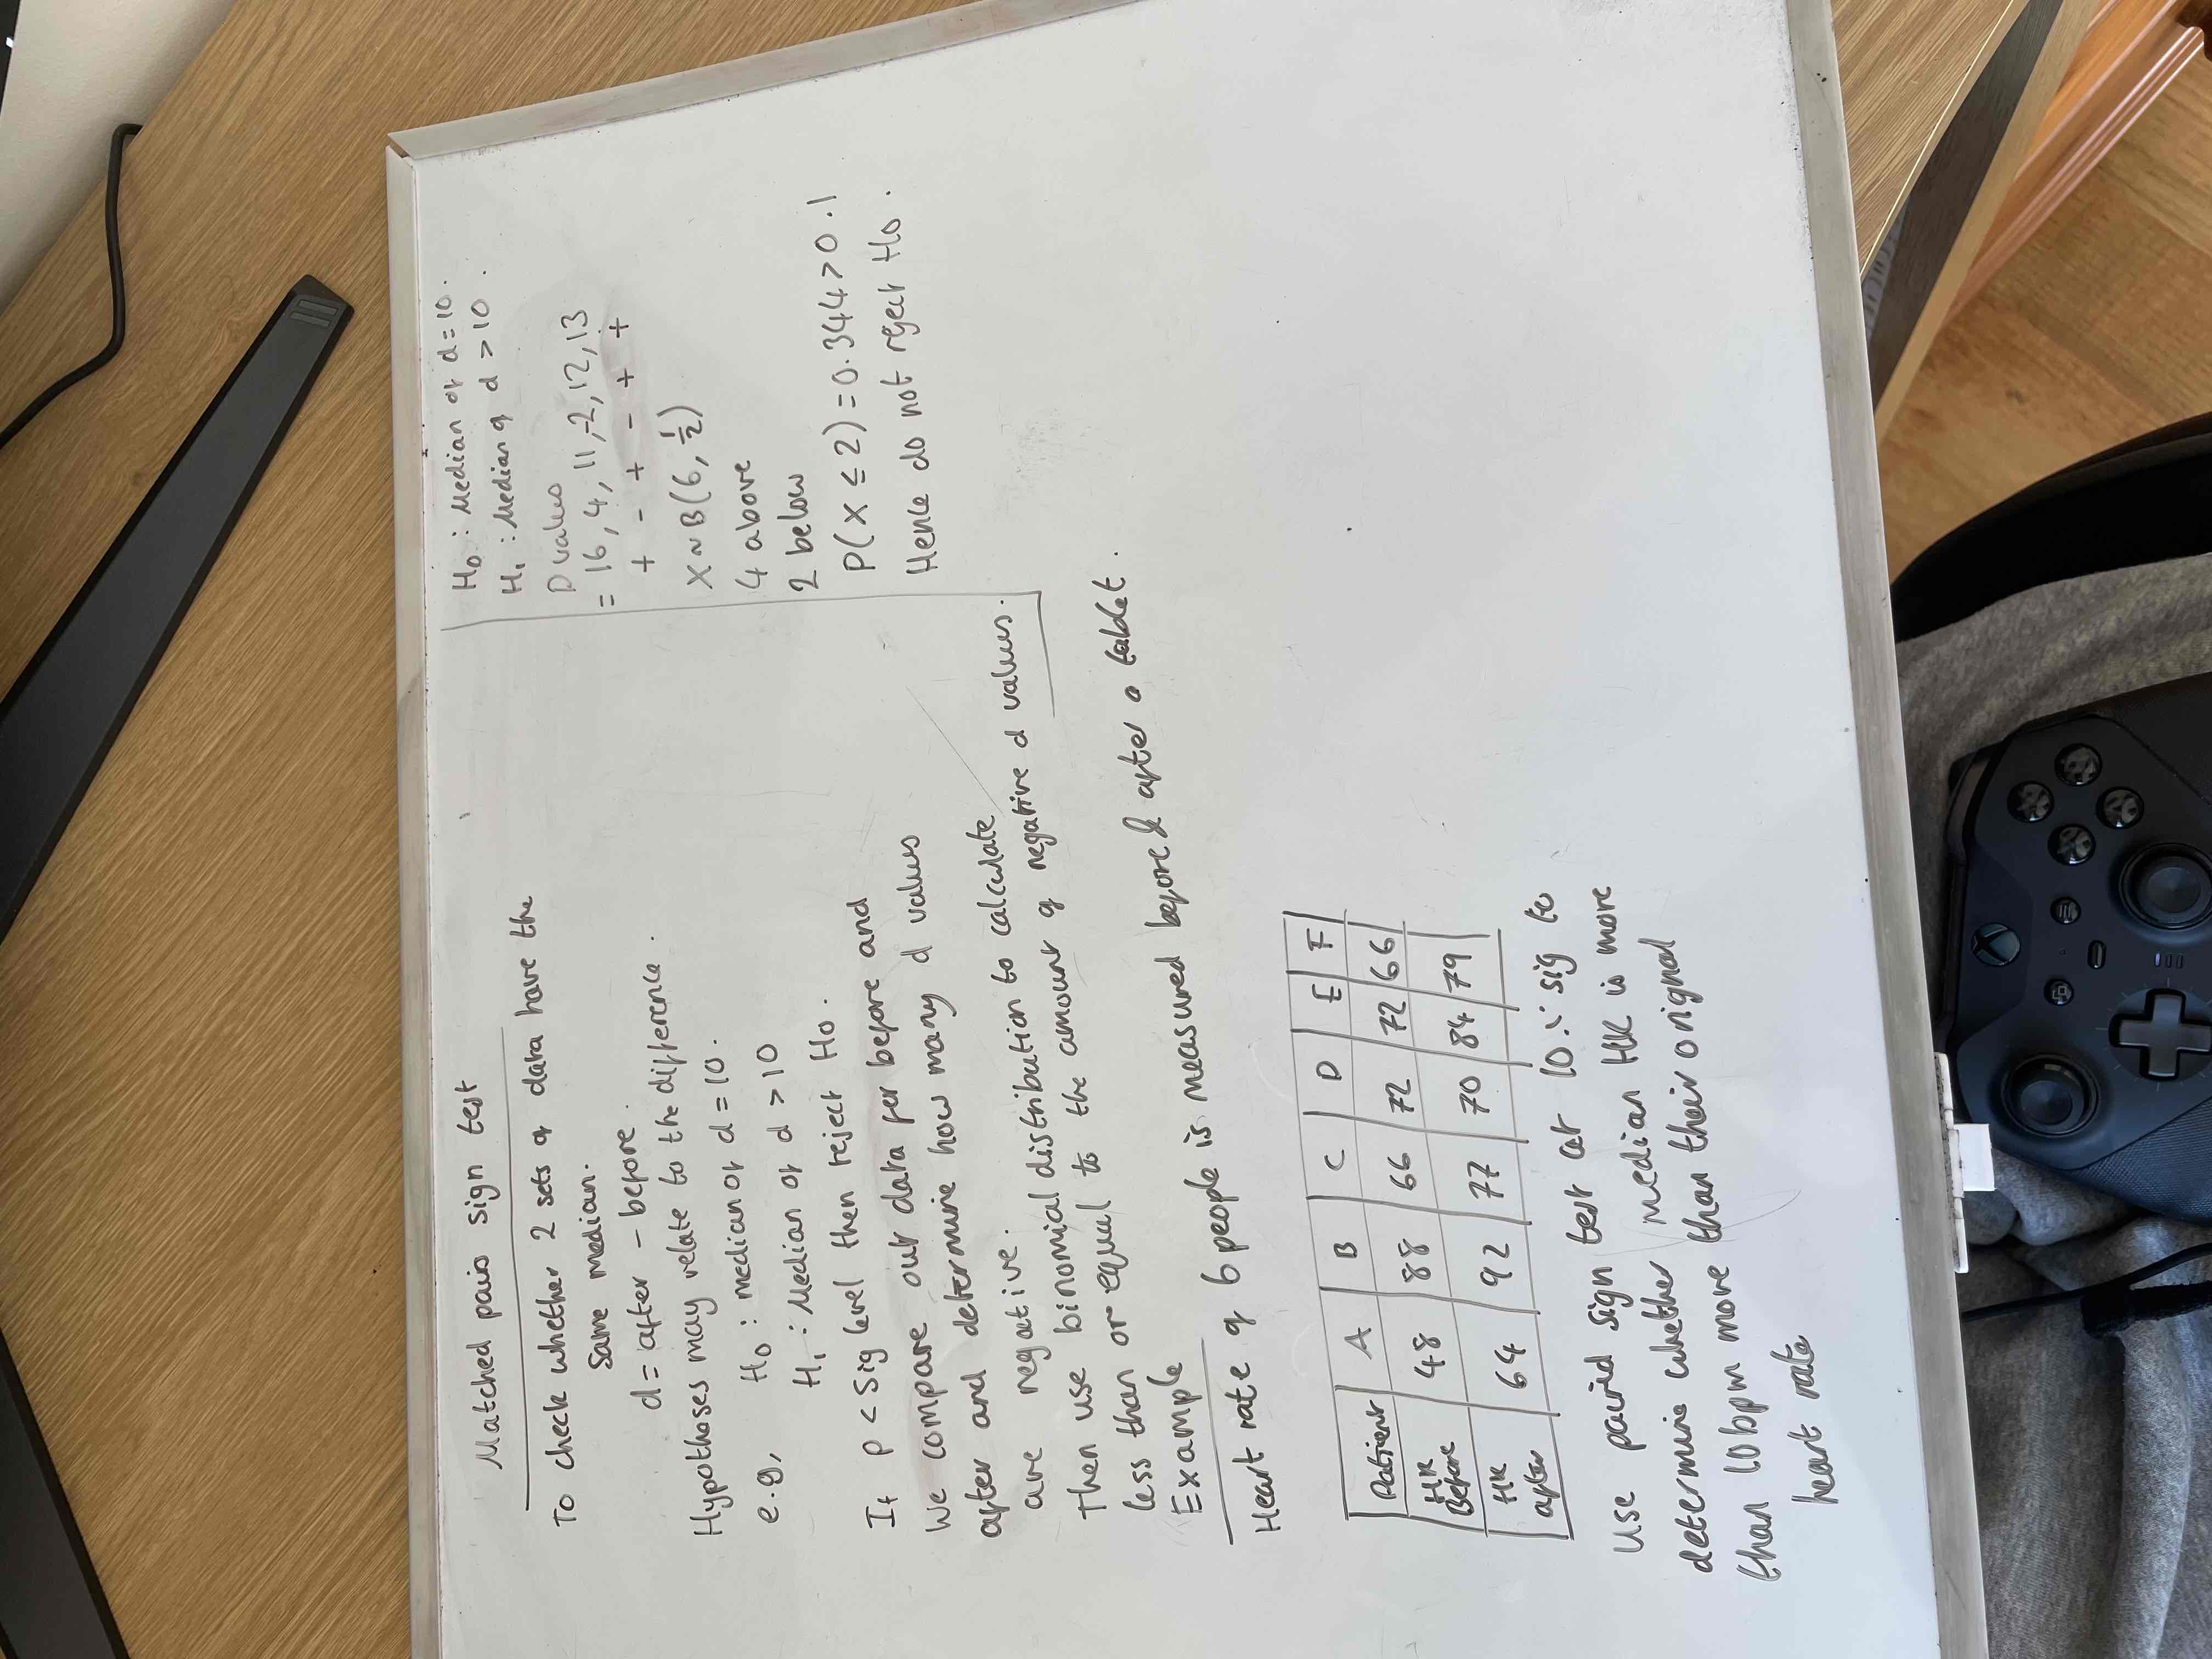 Matched pairs sign test
To check whether 2 sets of data have the
same median.
d = after - before.
Hypotheses may relate to the difference.
e.g, H₀ : median of d = 10.
H₁ : Median of d > 10
If p < sig level then reject H₀.
We compare our data for before and
after and determine how many d values
are negative.
Then use binomial distribution to calculate
less than or equal to the amount of negative d values.
Example
Heart rate of 6 people is measured before & after a tablet.
Patient A B C D E F
HR Before 48 88 66 72 72 66
HR after 64 92 77 70 84 79
Use paired sign test at 10% sig to
determine whether median HR is more
than 10bpm more than their orignal
heart rate
H₀ : Median of d = 10.
H₁ : Median of d > 10.
D values
= 16, 4, 11, -2, 12, 13
+ - + - + +
X ~ B(6, ½)
4 above
2 below
P(X ≤ 2) = 0.344 > 0.1
Hence do not reject H₀.